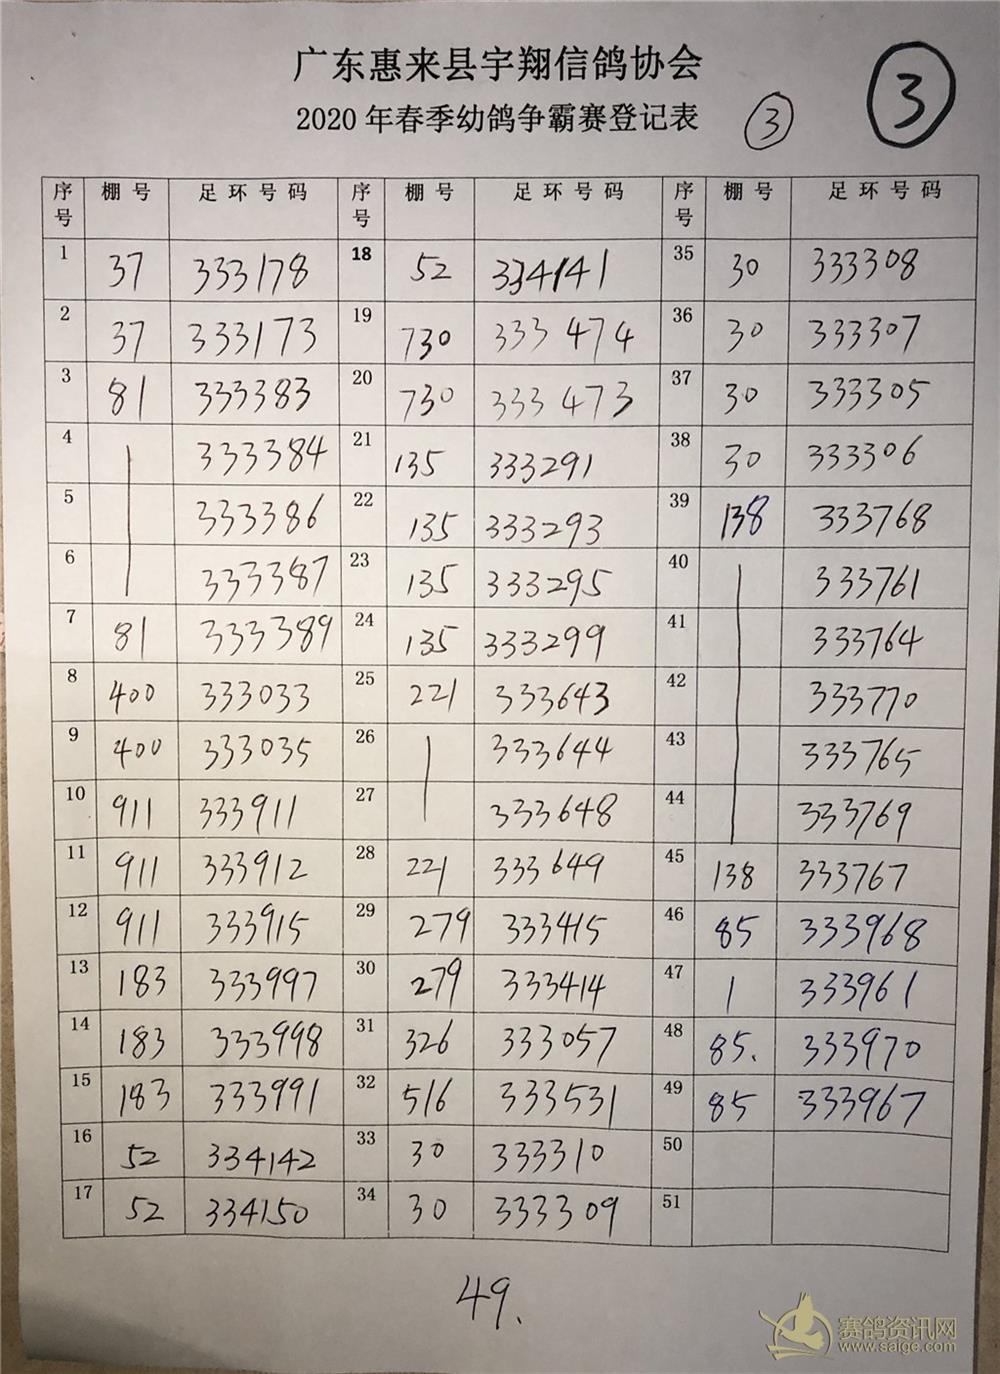 广东惠来县宇翔信鸽协会
③
2020年春季幼鸽争霸赛登记表 ③
序号 棚号 足环号码 序号 棚号 足环号码 序号 棚号 足环号码
1 37 333178 18 52 334141 35 30 333308
2 37 333173 19 730 333474 36 30 333307
3 81 333383 20 730 333473 37 30 333305
4 | 333384 21 135 333291 38 30 333306
5 | 333386 22 135 333293 39 138 333768
6 | 333387 23 135 333295 40 | 333761
7 81 333389 24 135 333299 41 | 333764
8 400 333033 25 221 333643 42 | 333770
9 400 333035 26 | 333644 43 | 333765
10 911 333911 27 | 333648 44 | 333769
11 911 333912 28 221 333649 45 138 333767
12 911 333915 29 279 333415 46 85 333968
13 183 333997 30 279 333414 47 | 333961
14 183 333998 31 326 333057 48 85. 333970
15 183 333991 32 516 333531 49 85 333967
16 52 334142 33 30 333310 50
17 52 334150 34 30 333309 51
49.
赛鸽资讯网
www.saige.com